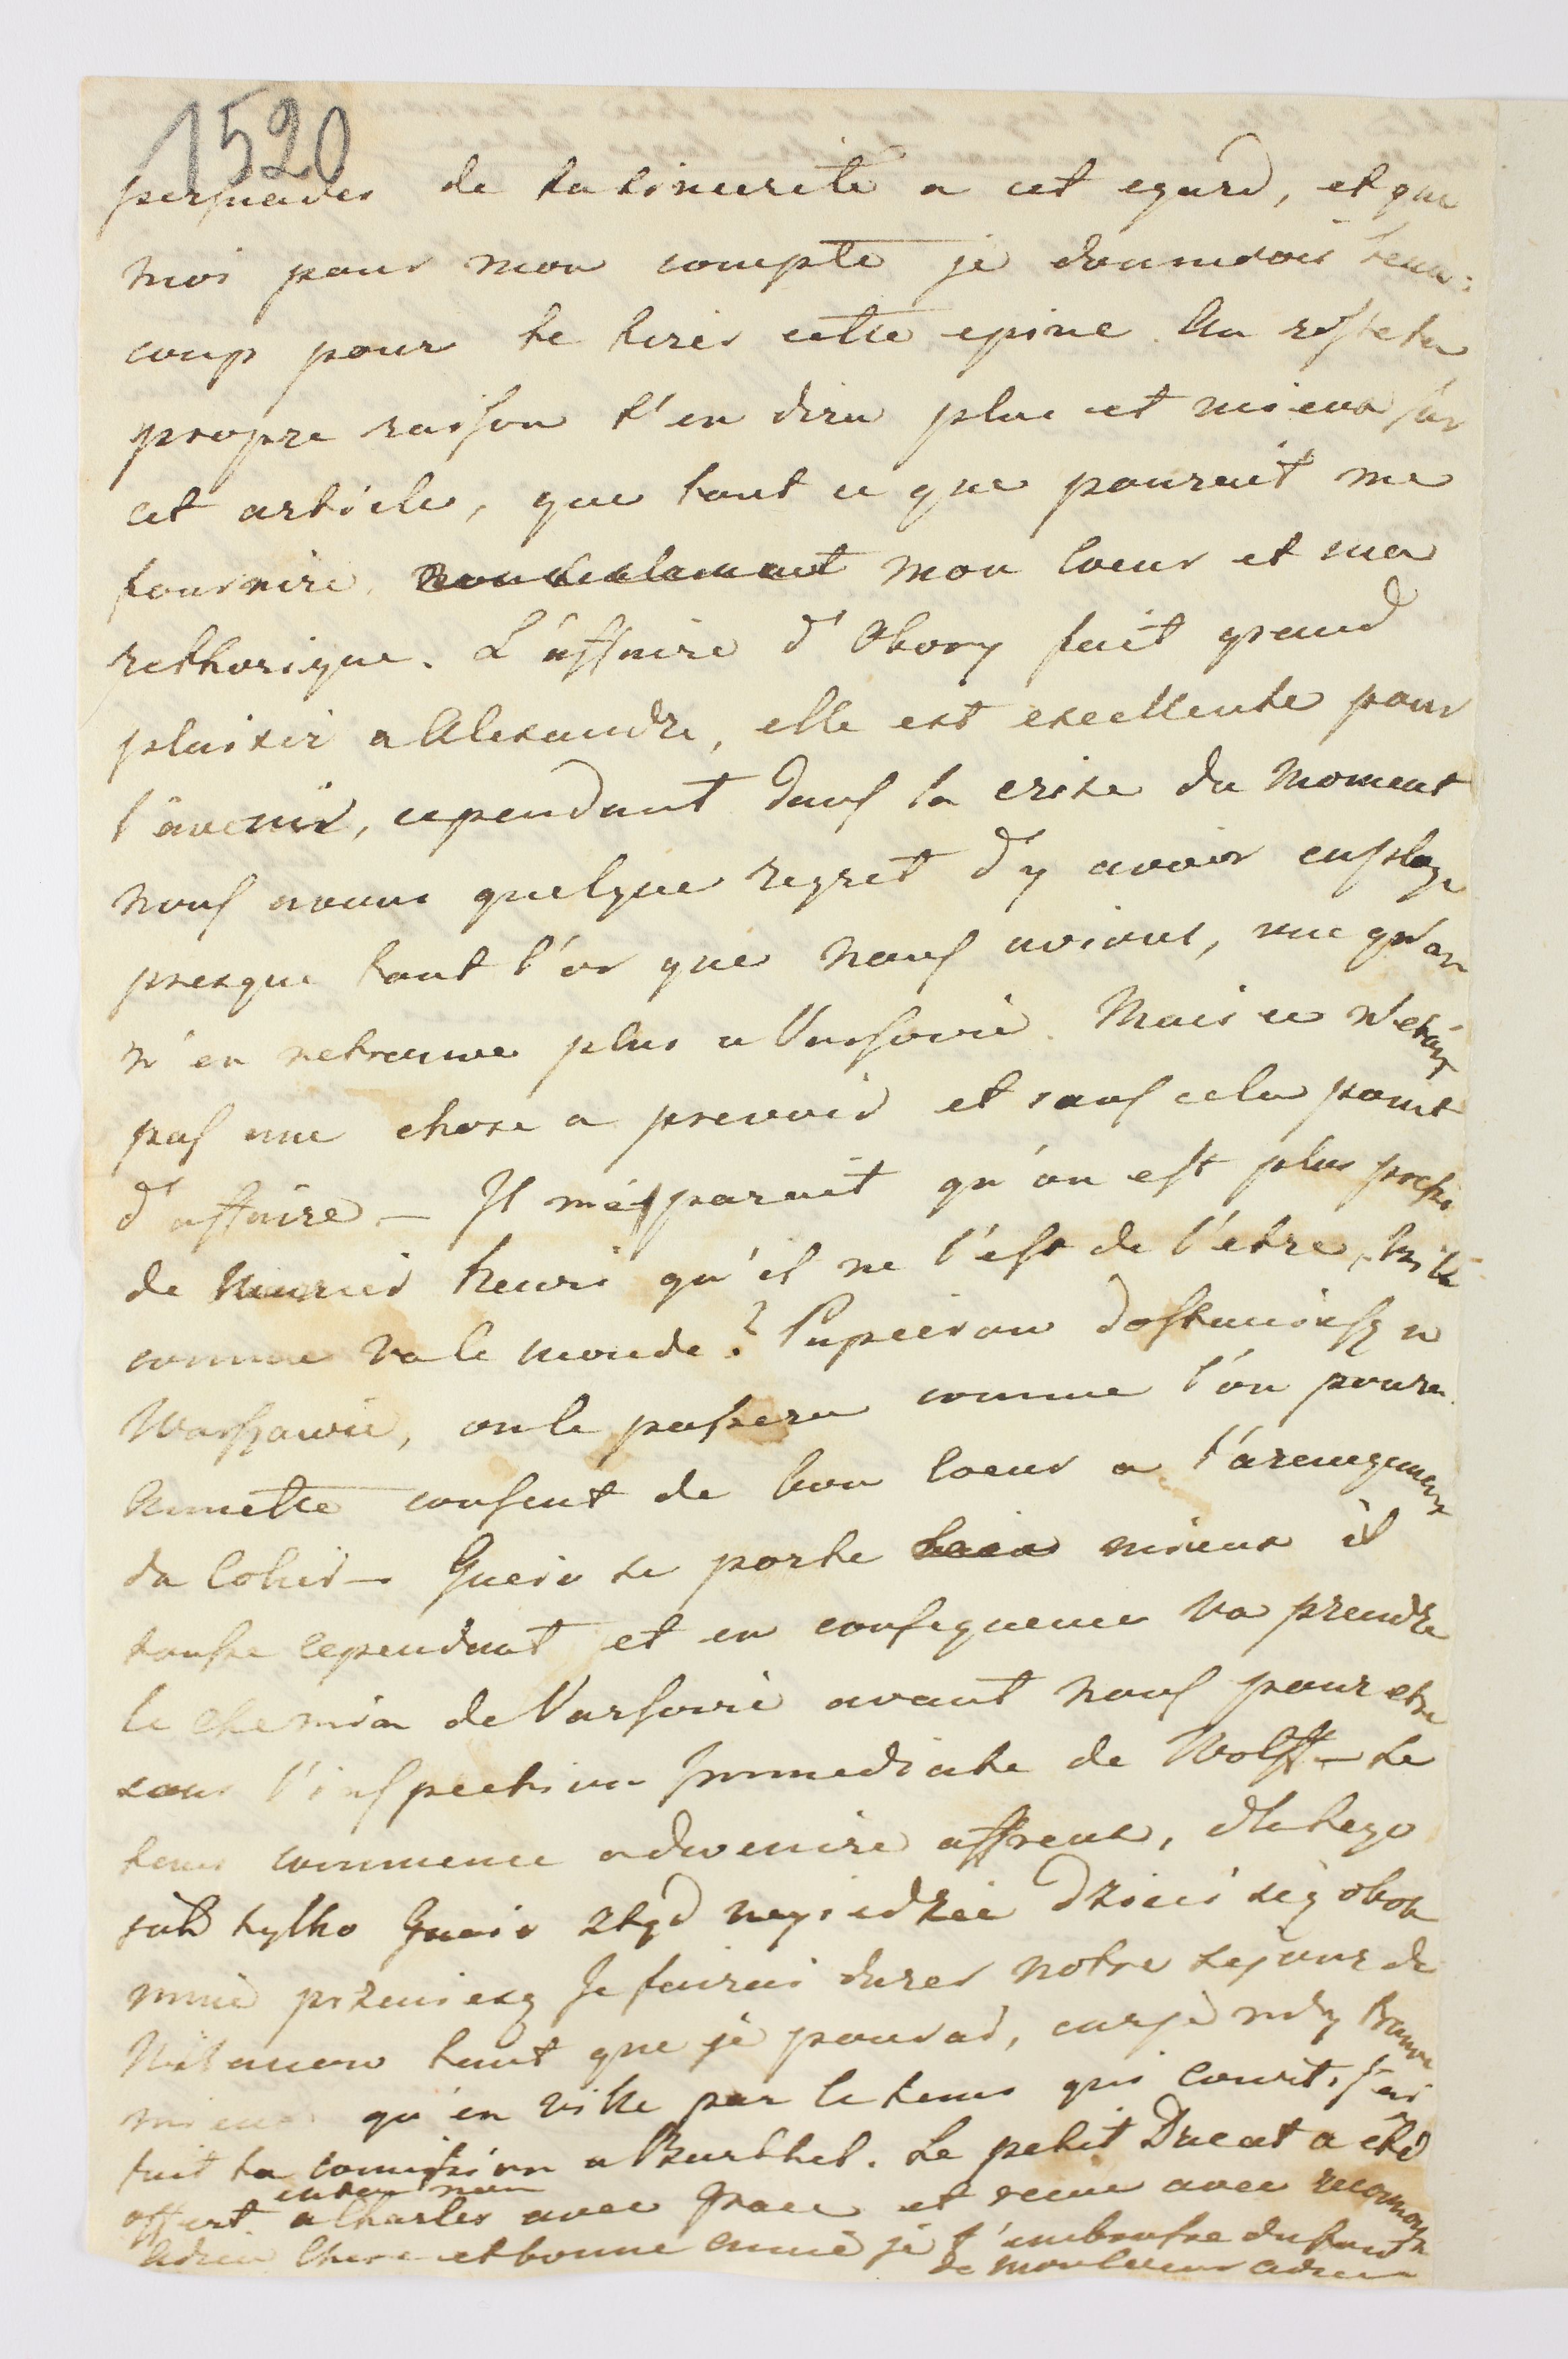 1520
persuader de ta sincerité a cet egard, et que
moi pour mon compte je donnerois beau-
coup pour te tirer cette epine. Au reste ta
propre raison t'en dira plus et mieux sur
cet article, que tout ce que pourait me
fournire mon coeur et ma
rethorique. L'affaire d'Obory fait grand
plaisir a Alexandre, elle est excellente pour
l'avenir, cependant dans la crise du moment
nous avons quelque regret d'y avoir employe
presque tout l'or que nous avions, vue qu'on
n'en retrouve plus a Varsovie. Mais ce n'etait
pas une chose a prevoir et sans cela point
d'affaire – Il me parait qu'on est plus
de Henri qu'il ne l'est de l'etre,
comme va le monde?
Warszawie, on le passera comme l'on poura.
Annette consent de bon coeur a l'arengement
du Colier – Gucio se porte mieux il
tousse cependant et en consequence va prendre
le chemin de Varsovie avant nous pour etre
sous l'inspection immediate de Wolff – Le
tems commence a devenire affreux, dla tego
tylko Gucio ztąd dzieci się obok
mnie Je fairai durer notre sejour de
Wilanow tant que je pourai, car je m'y trouve
mieux qu'en ville par le tems qui court. J'ai
fait ta comission a Barthel. Le petit Ducat a eté
offert en ton nom a Charles avec grace et recue avec reconnoi
Adieu chere et bonne amie je t'embrasse du fond
de mon coeur adieu